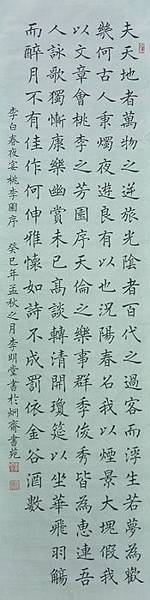 夫天地者萬物之逆旅光陰者百代之過客而浮生若夢為歡
幾何古人秉燭夜遊良有以也況陽春召我以煙景大塊假我
以文章會桃李之芳園序天倫之樂事群季俊秀皆為惠連吾
人詠歌獨慚康樂幽賞未已高談轉清開瓊筵以坐華飛羽觴
而醉月不有佳作何伸雅懷如詩不成罰依金谷酒數
李白春夜宴桃李園序 癸巳年孟秋之月李明堂書於炯齋書苑